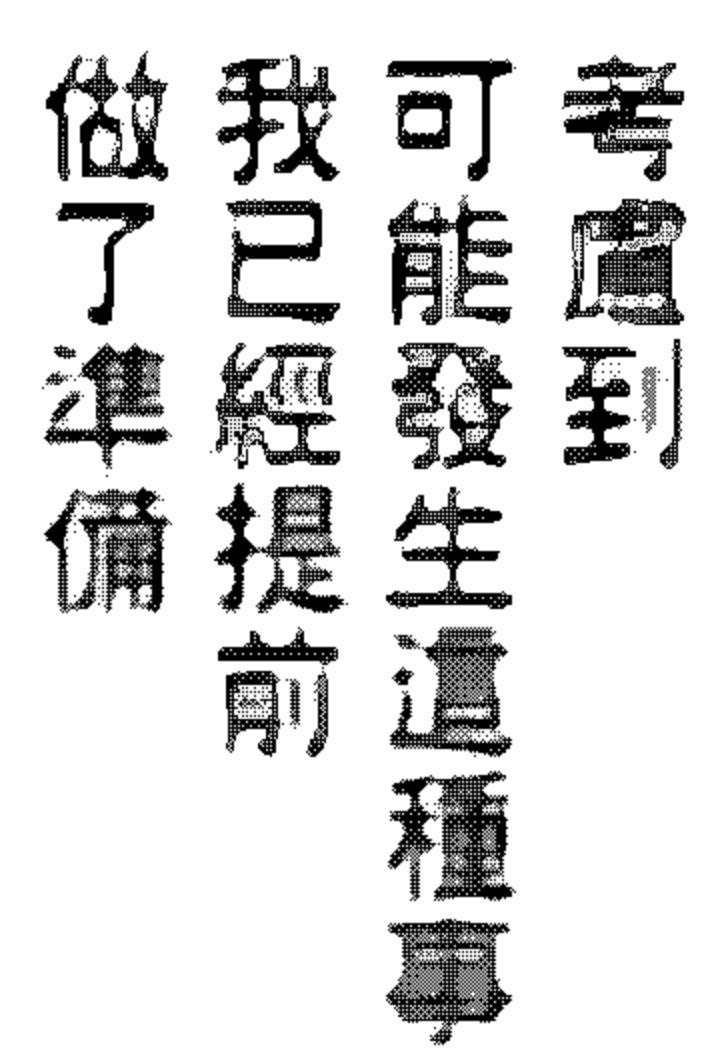 考慮到
可能發生這種事
我已經提前
做了準備